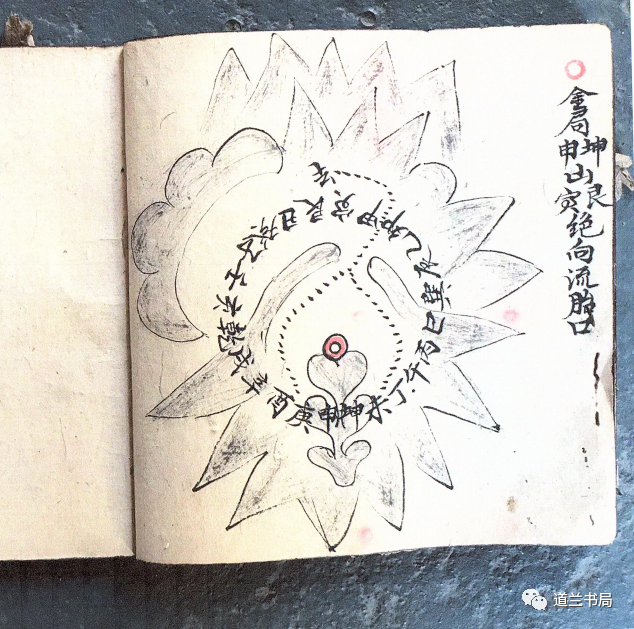 金局坤申山艮寅绝向流胎口
子癸丑艮寅甲卯乙辰巽巳丙午丁未坤申庚酉辛戌乾亥
道兰书局